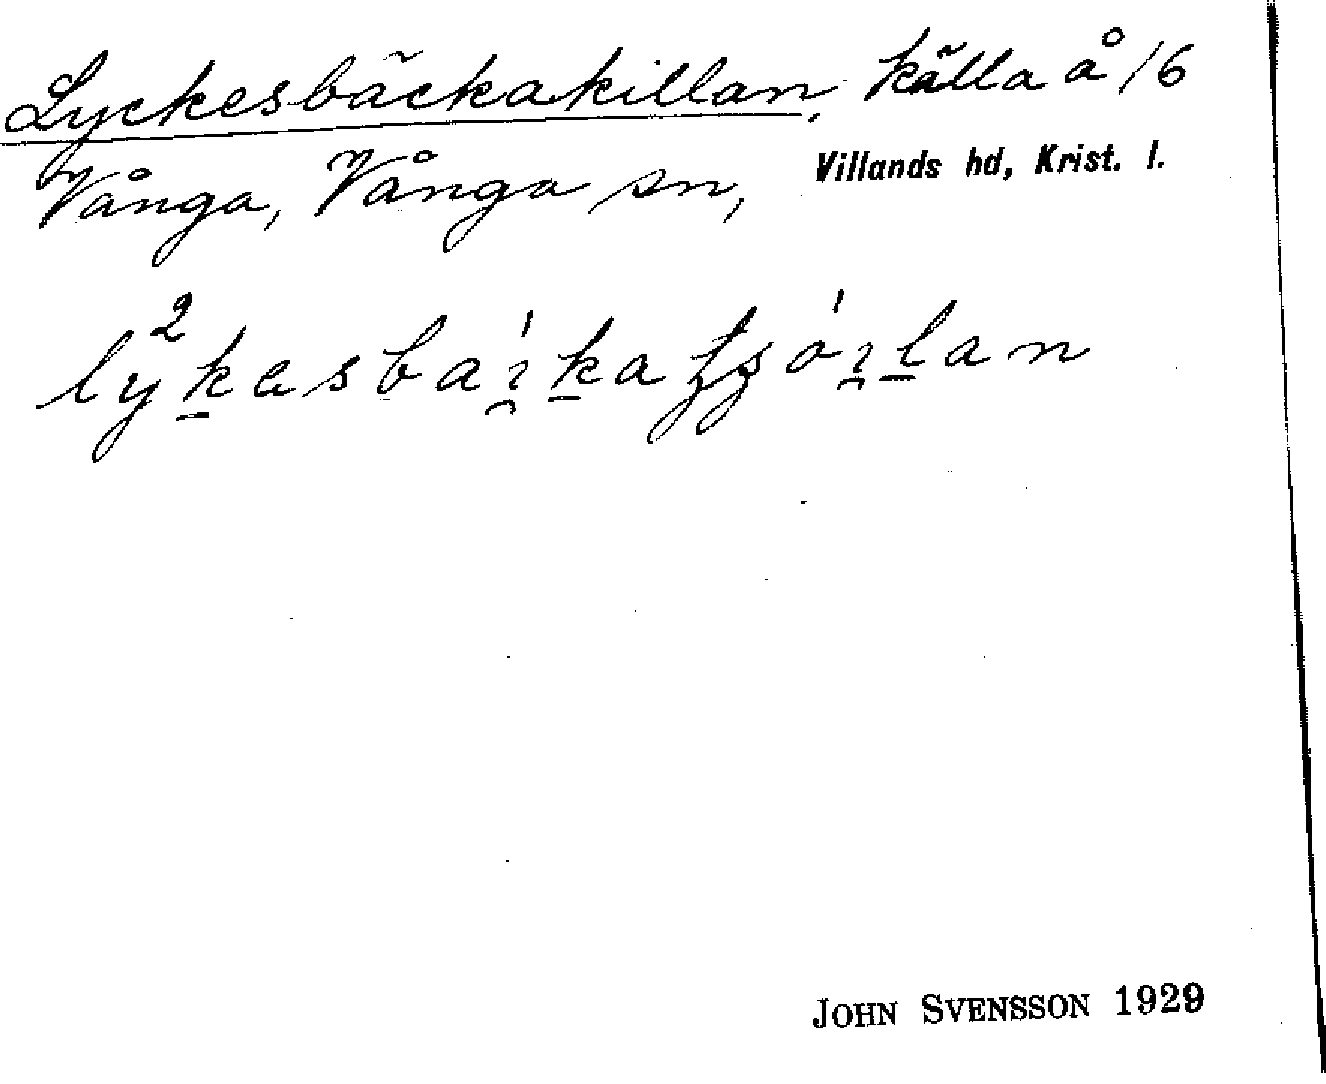 Lyckesbäckakillan, källa å 16
Vånga, Vånga sn, Villands hd, Krist. l.
JOHN SVENSSON 1929